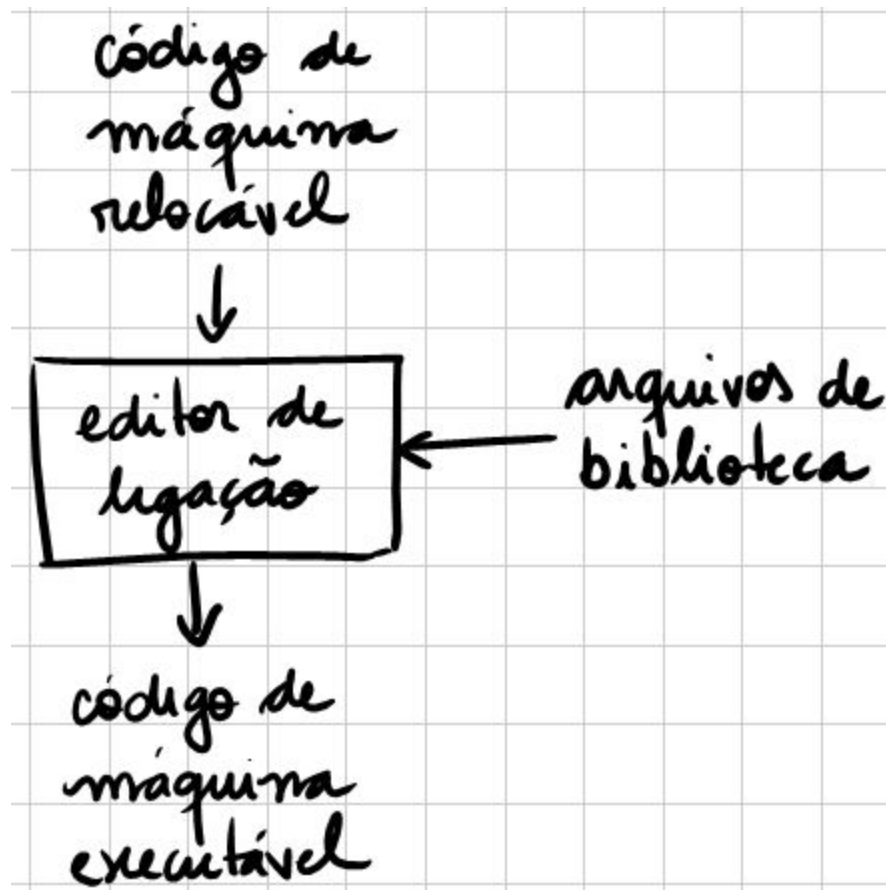 código de
máquina
relocável
editor de
ligação
arquivos de
biblioteca
código de
máquina
executável